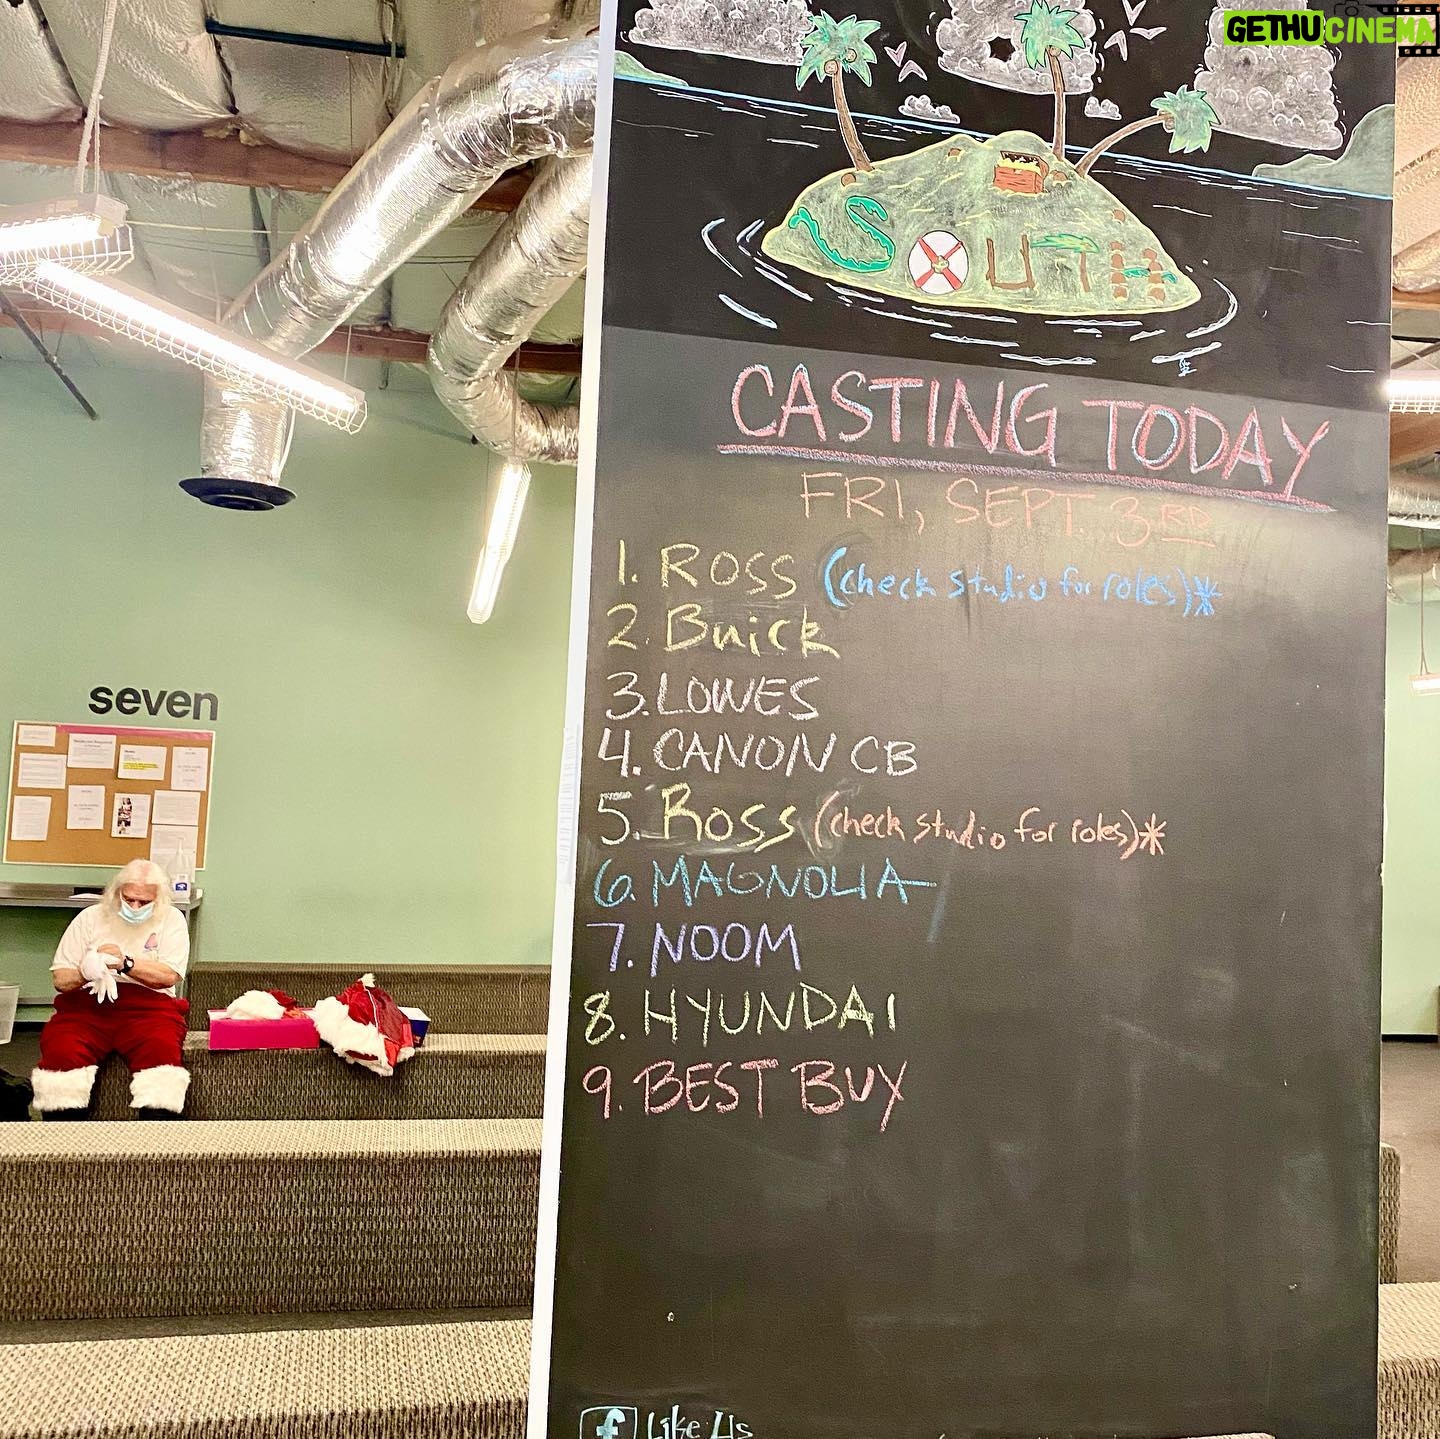 GETHUCINEMA
SOUTH
CASTING TODAY
FRI, SEPT. 3RD
1. ROSS (check studio for roles)*
2. Buick
3. LOWES
4. CANON CB
5. ROSS (check studio for roles)*
6. MAGNOLIA
7. NOOM
8. HYUNDAI
9. BEST BUY
seven
f Like Us